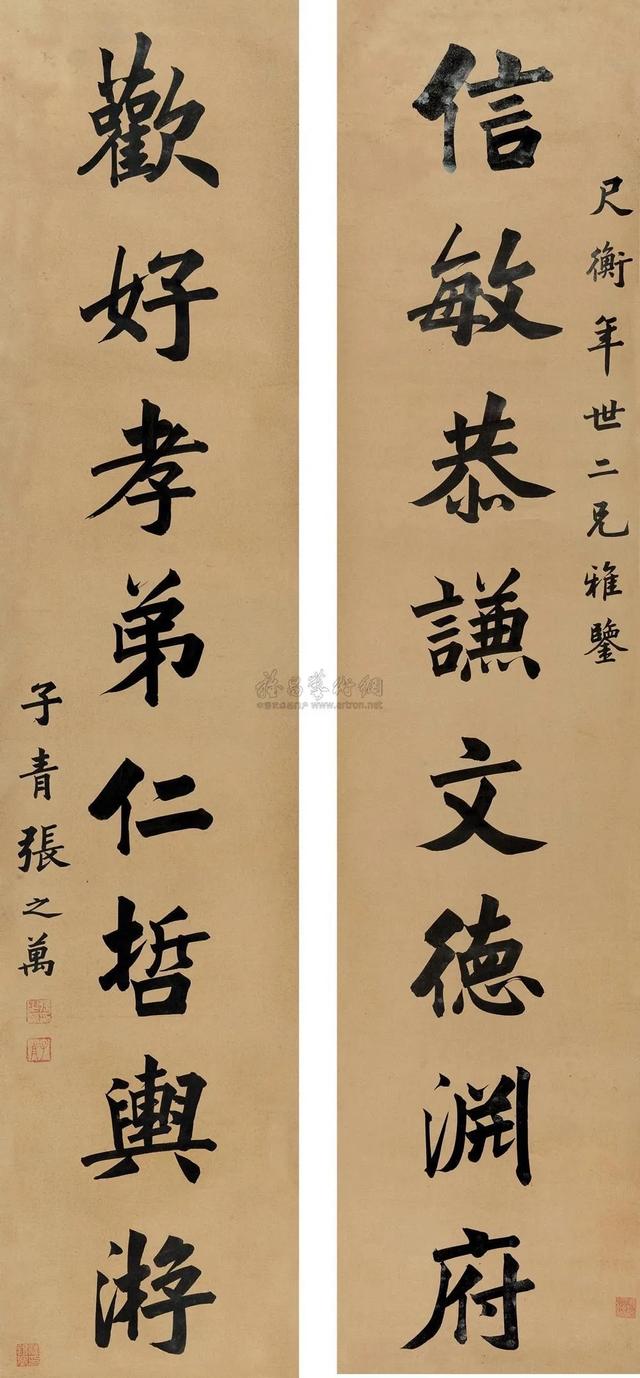 尺衡年世二兄雅鑒
信敏恭謙文德淵府
歡好孝弟仁哲輿游
子青張之萬
www.artron.net